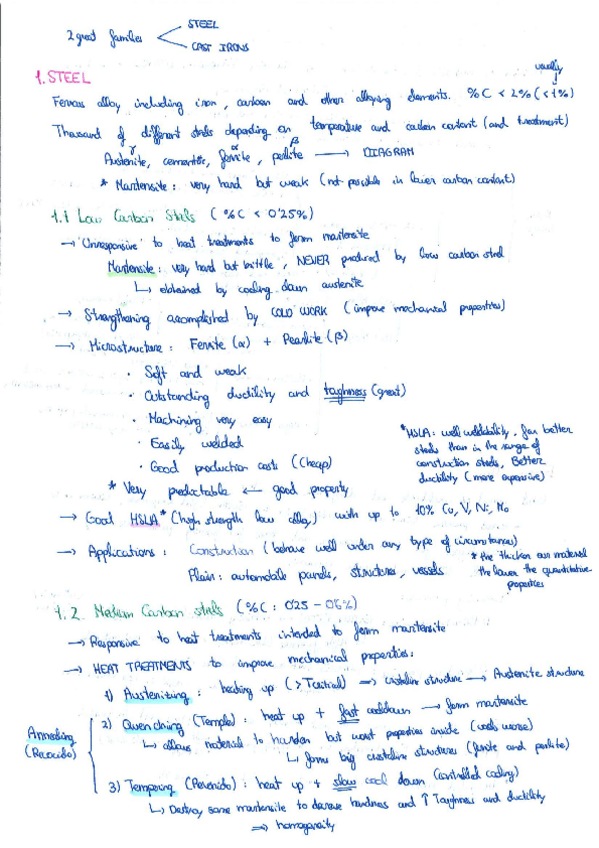 2 great families < STEEL
CAST IRONS
1. STEEL
usually
Ferrous alloy including iron, carbon and other alloying elements. %C < 2% (<1%)
Thousand of different steels depending on temperature and carbon content (and treatment)
γ α β
Austenite, cementite, ferrite, perlite → DIAGRAM
* Martensite: very hard but weak (not possible in lower carbon content)
1.1 Low Carbon Steels (%C < 0'25%)
→ 'Unresponsive' to heat treatments to form martensite
Martensite: very hard but brittle, NEVER produced by low carbon steel
↳ obtained by cooling down austenite
→ Strengthening accomplished by COLD WORK (improve mechanical properties)
→ Microstructure: Ferrite (α) + Pearlite (β)
· Soft and weak
· Outstanding ductility and toughness (great)
· Machining very easy
· Easily welded
· Good production costs (Cheap)
* Very predictable ← good property
*HSLA: well weldability, far better
steels than in the range of
construction steels, Better
ductility (more expensive)
→ Good HSLA* (high strength low alloy) with up to 10% Cu, V, Ni, Mo
→ Applications: Construction (behave well under any type of circumstances)
Plain: automobile panels, structures, vessels
* the thicker our material
the lower the quantitative
properties
1.2. Medium Carbon steels (%C: 0'25 - 0'6%)
→ Responsive to heat treatments intended to form martensite
→ HEAT TREATMENTS to improve mechanical properties:
1) Austenizing: heating up (>Tcritical) ⇒ crystalline structure → Austenite structure
Annealing (Recocido)
2) Quenching (Temple): heat up + fast cooldown → form martensite
↳ allows material to harden but worst properties inside (cools worse)
↳ forms big crystalline structures (ferrite and perlite)
3) Tempering (Revenido): heat up + slow cool down (controlled cooling)
↳ Destroy some martensite to decrease hardness and ↑ Toughness and ductility
⇒ homogeneity